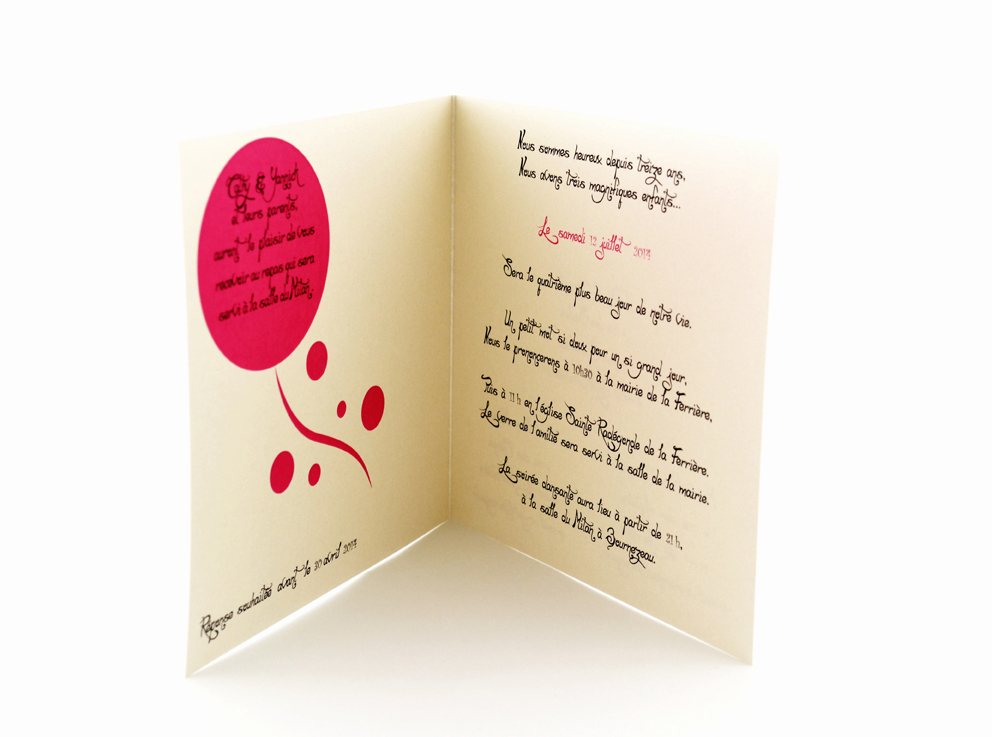 & Yannick
et leurs parents,
auront le plaisir de vous
recevoir au repas qui sera
servi à la salle du Milan.
Réponse souhaitée avant le 30 avril 2014
Nous sommes heureux depuis treize ans,
Nous avons trois magnifiques enfants...
Le samedi 12 juillet 2014
Sera le quatrième plus beau jour de notre vie.
Un petit mot si doux pour un si grand jour,
Nous le prononcerons à 10h30 à la mairie de la Ferrière,
Puis à 11 h en l'église Sainte Radégonde de la Ferrière.
Le verre de l'amitié sera servi à la salle de la mairie.
La soirée dansante aura lieu à partir de 21 h,
à la salle du Milan à Bournezeau.